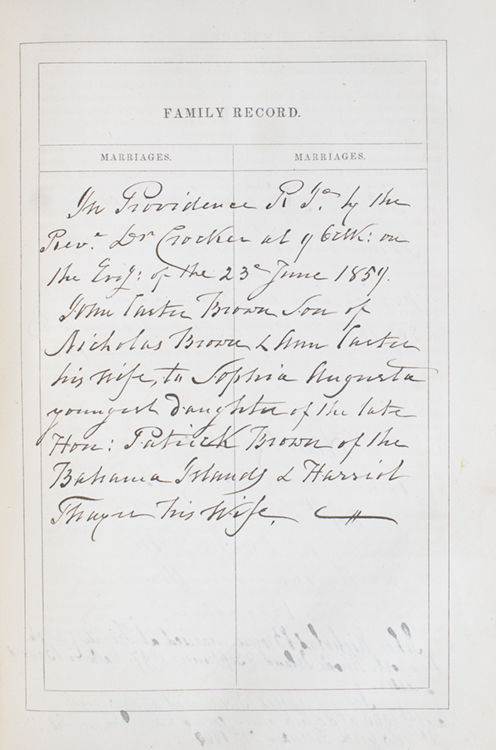 FAMILY RECORD.
MARRIAGES. MARRIAGES.
In Providence R Id. by the
Revd. Dr Crocker at 9 Oclk: on
the Evg: of the 23d June 1859.
John Carter Brown Son of
Nicholas Brown & Ann Carter
his wife, to Sophia Augusta
youngest daughter of the late
Hon: Patrick Brown of the
Bahama Islands & Harriot
Thayer his wife.